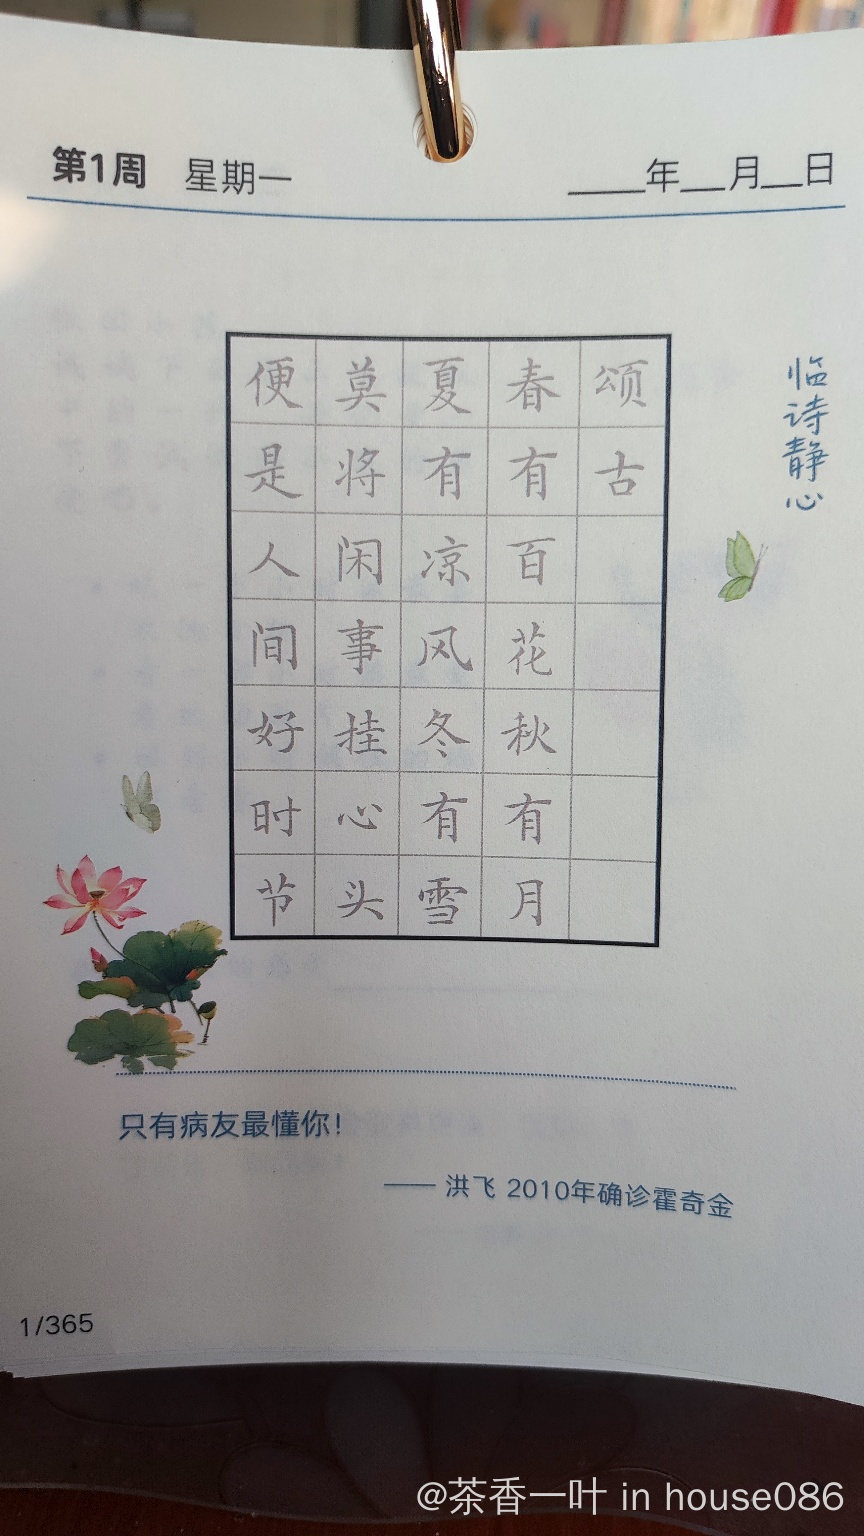 第1周 星期一 ____年__月__日
临诗静心
颂古
春有百花秋有月
夏有凉风冬有雪
莫将闲事挂心头
便是人间好时节
只有病友最懂你！
—— 洪飞 2010年确诊霍奇金
1/365
@茶香一叶 in house086